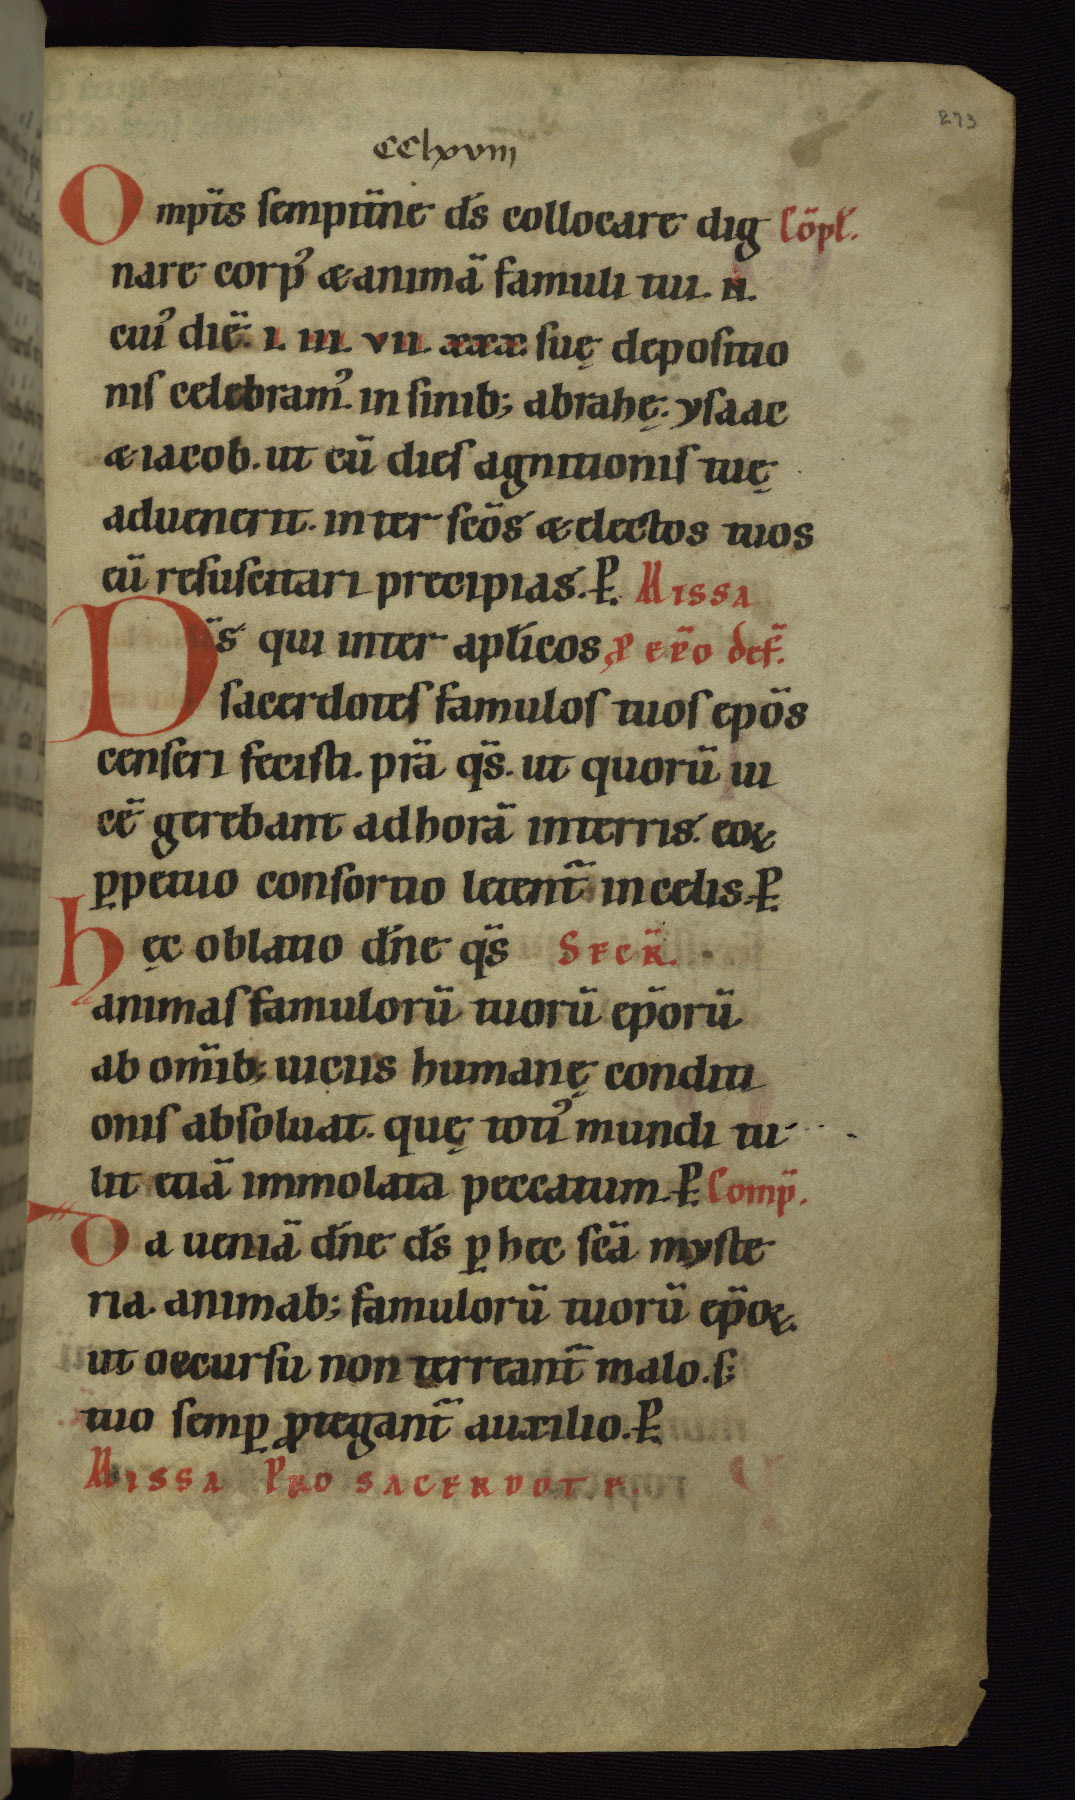 273
CClxviii
Omp̄ts sempit̄ne d̄s collocare dig Cōpl.
nare corp᾿ & animā famuli tui. N.
cui᾿ diē. i. iii. vii. xxx. suę depositio
nis celebram᾿. in sinib; abrahę. ysaac
& iacob. ut cū dies agnitionis tuę
aduenerit. inter scōs & electos tuos
eū resuscitari precipias. P. Missa
D̄s qui inter apl̄icos ꝓ ep̄o def̄.
sacerdotes famulos tuos epōs
censeri fecisti. pr̄a q̄s. ut quorū ui
cē gerebant ad horā in terris. eoꝝ
ꝑpetuo consortio letent̄ in celis. P.
hęc oblatio dn̄e q̄s Secr̄.
animas famulorū tuorū ep̄orū
ab om̄ib; uiciis humanę conditi
onis absoluat. quę toti᾿ mundi tu
lit etiā immolata peccatum. P. Comp̄.
Da ueniā dn̄e d̄s ꝑ hec scā myste
ria. animab; famulorū tuorū ep̄oꝝ.
ut occursu non terreant̄ malo. s;
tuo semꝑ ꝓtegant̄ auxilio. P.
Missa Pro sacerdote.